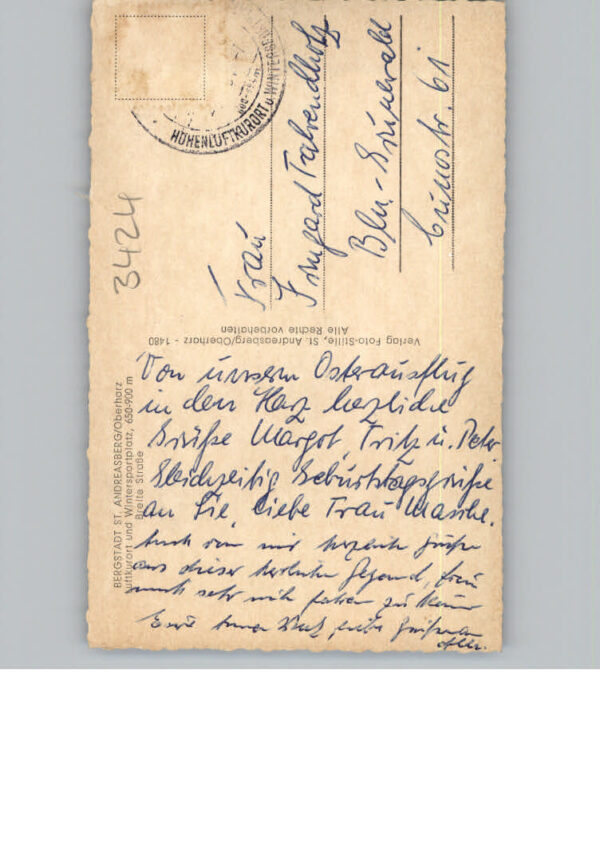 HÖHENLUFTKURORT u. WINTERS
3424
Frau
Irmgard Fahrendholz
Bln.-Grunewald
Cunostr. 61
Verlag Foto-Stille, St. Andreasberg/Oberharz - 1480
Alle Rechte vorbehalten
BERGSTADT ST. ANDREASBERG/Oberharz
uftkurort und Wintersportplatz, 650-900 m
Breite Straße
Von unserm Osterausflug
in den Harz herzliche
Grüße Margot, Fritz u. Peter
Gleichzeitig Geburtstagsgrüße
an Sie, liebe Frau Masche.
Auch von mir herzliche Grüße
aus dieser herrlichen Gegend, freu
mich sehr mit fahren zu können